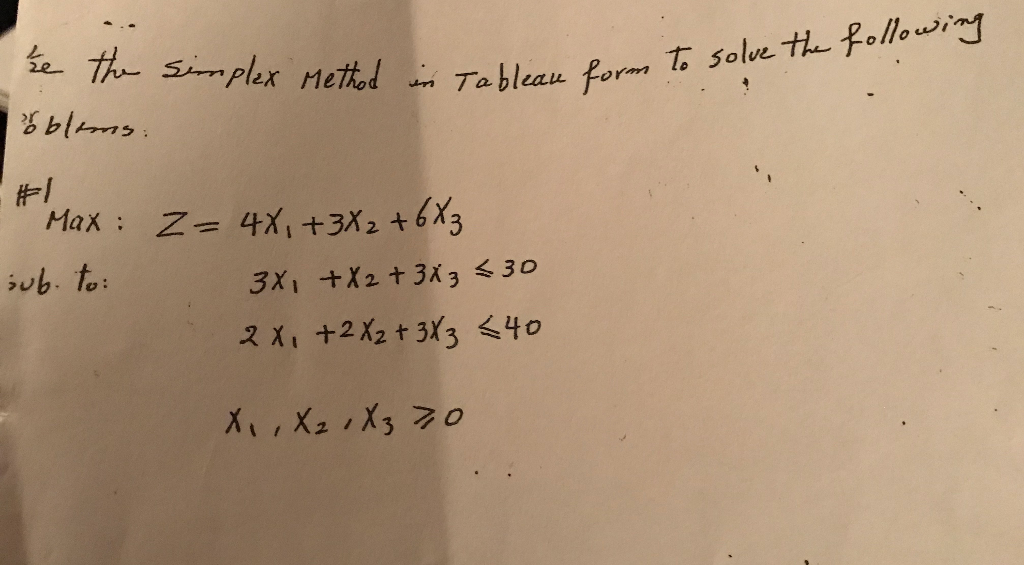 the Simplex Method in Tableau form to solve the following
#1
Max : Z = 4X₁ + 3X₂ + 6X₃
sub. to: 3X₁ + X₂ + 3X₃ ⩽ 30
2X₁ + 2X₂ + 3X₃ ⩽ 40
X₁, X₂, X₃ ⩾ 0